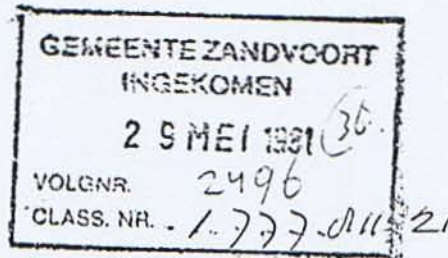 GEMEENTE ZANDVOORT
INGEKOMEN
29 MEI 1981
VOLGNR. 2496
CLASS. NR.